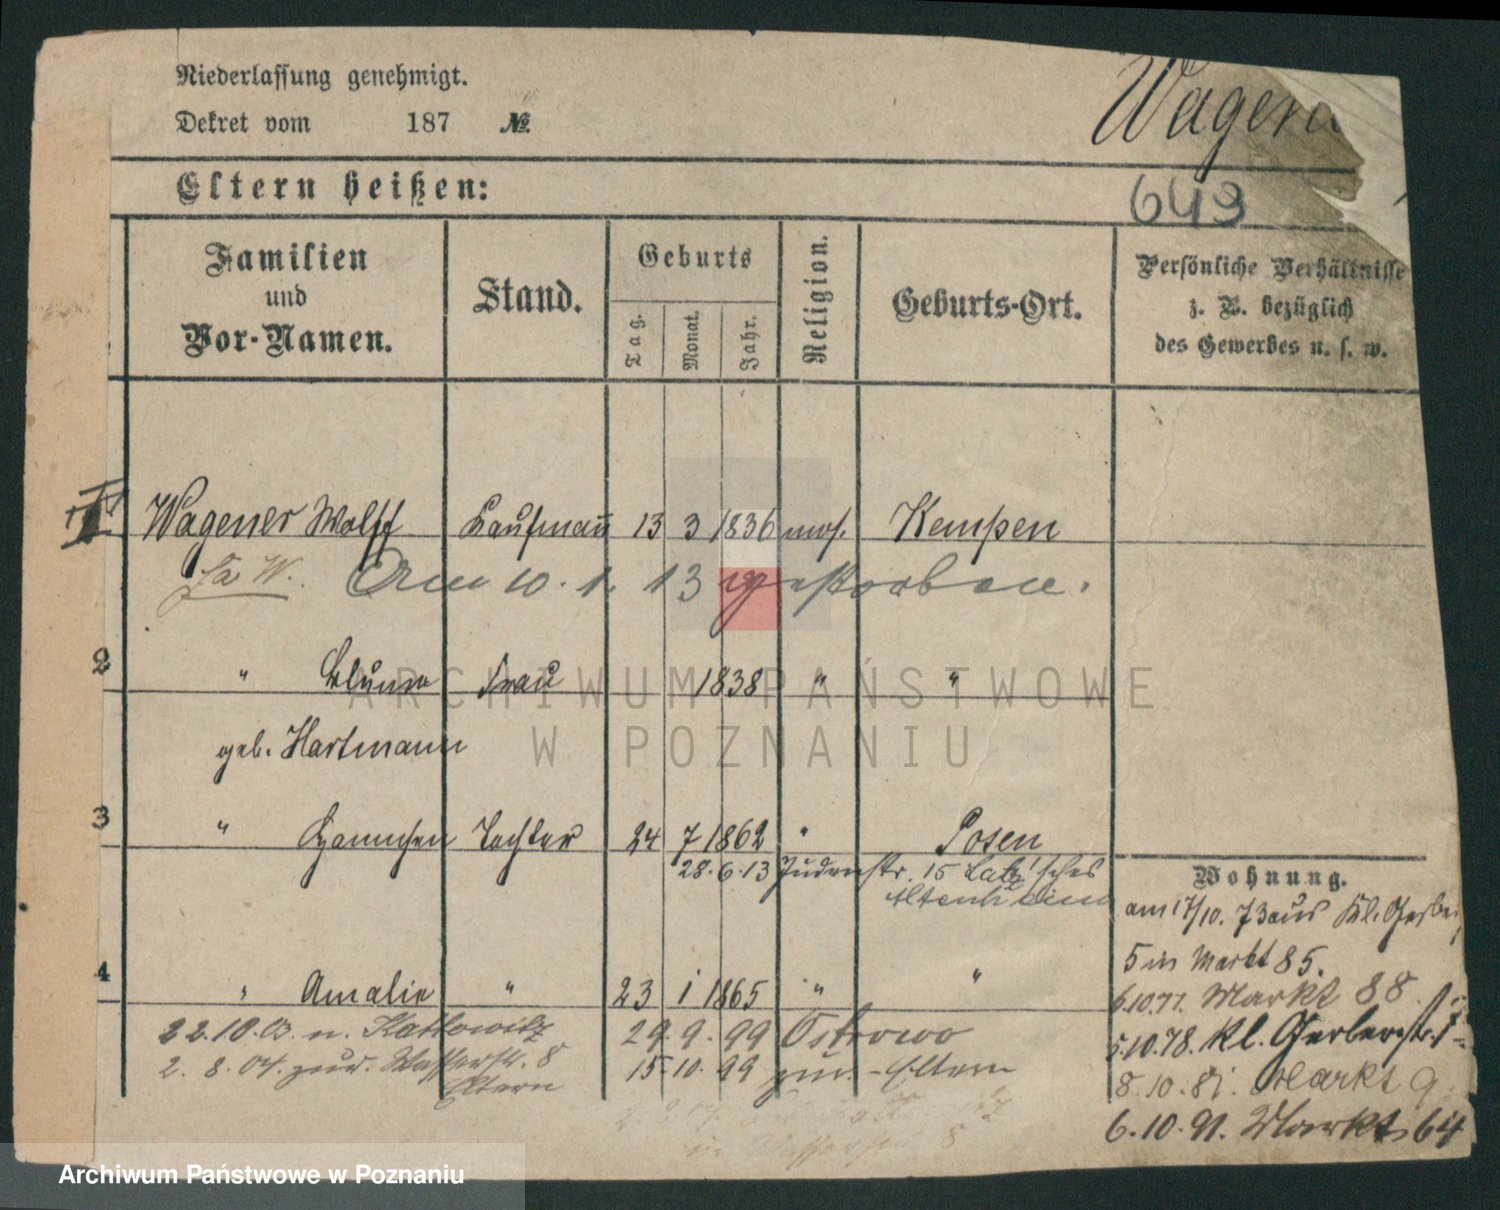 Niederlassung genehmigt.
Wagen
Dekret vom 187 №
Eltern heißen:
649
Familien und Vor-Namen.
Stand.
Geburts
Tag.
Monat.
Jahr.
Religion.
Geburts-Ort.
Persönliche Verhältnisse
z. B. bezüglich
des Gewerbes u. s. w.
1 Wagener Wolff Kaufmann 13 3 1836 mos. Kempen
W. Am 10. 1. 13 gestorben.
2 " Blume Frau 1838 " "
geb. Hartmann
3 " Hannchen Tochter 24 7 1862 " Posen
28.6.13 Judenstr. 15 Latz'sches
Altenheim
4 " Amalie " 23 1 1865 " "
22.10.03 n. Kattowitz 29.9.99 Ostrowo
2. 8. 04. zur. Wasserstr. 8 15.10.99 zur. - Eltern
Eltern
Wohnung.
am 17/10. 73 aus Kl. Gerbe
5 in Markt 85.
6.10.77. Markt 88.
5.10.78. Kl. Gerberstr.
8.10.81. Markt 9
6.10.91. Markt 64
ARCHIWUM PAŃSTWOWE
W POZNANIU
Archiwum Państwowe w Poznaniu